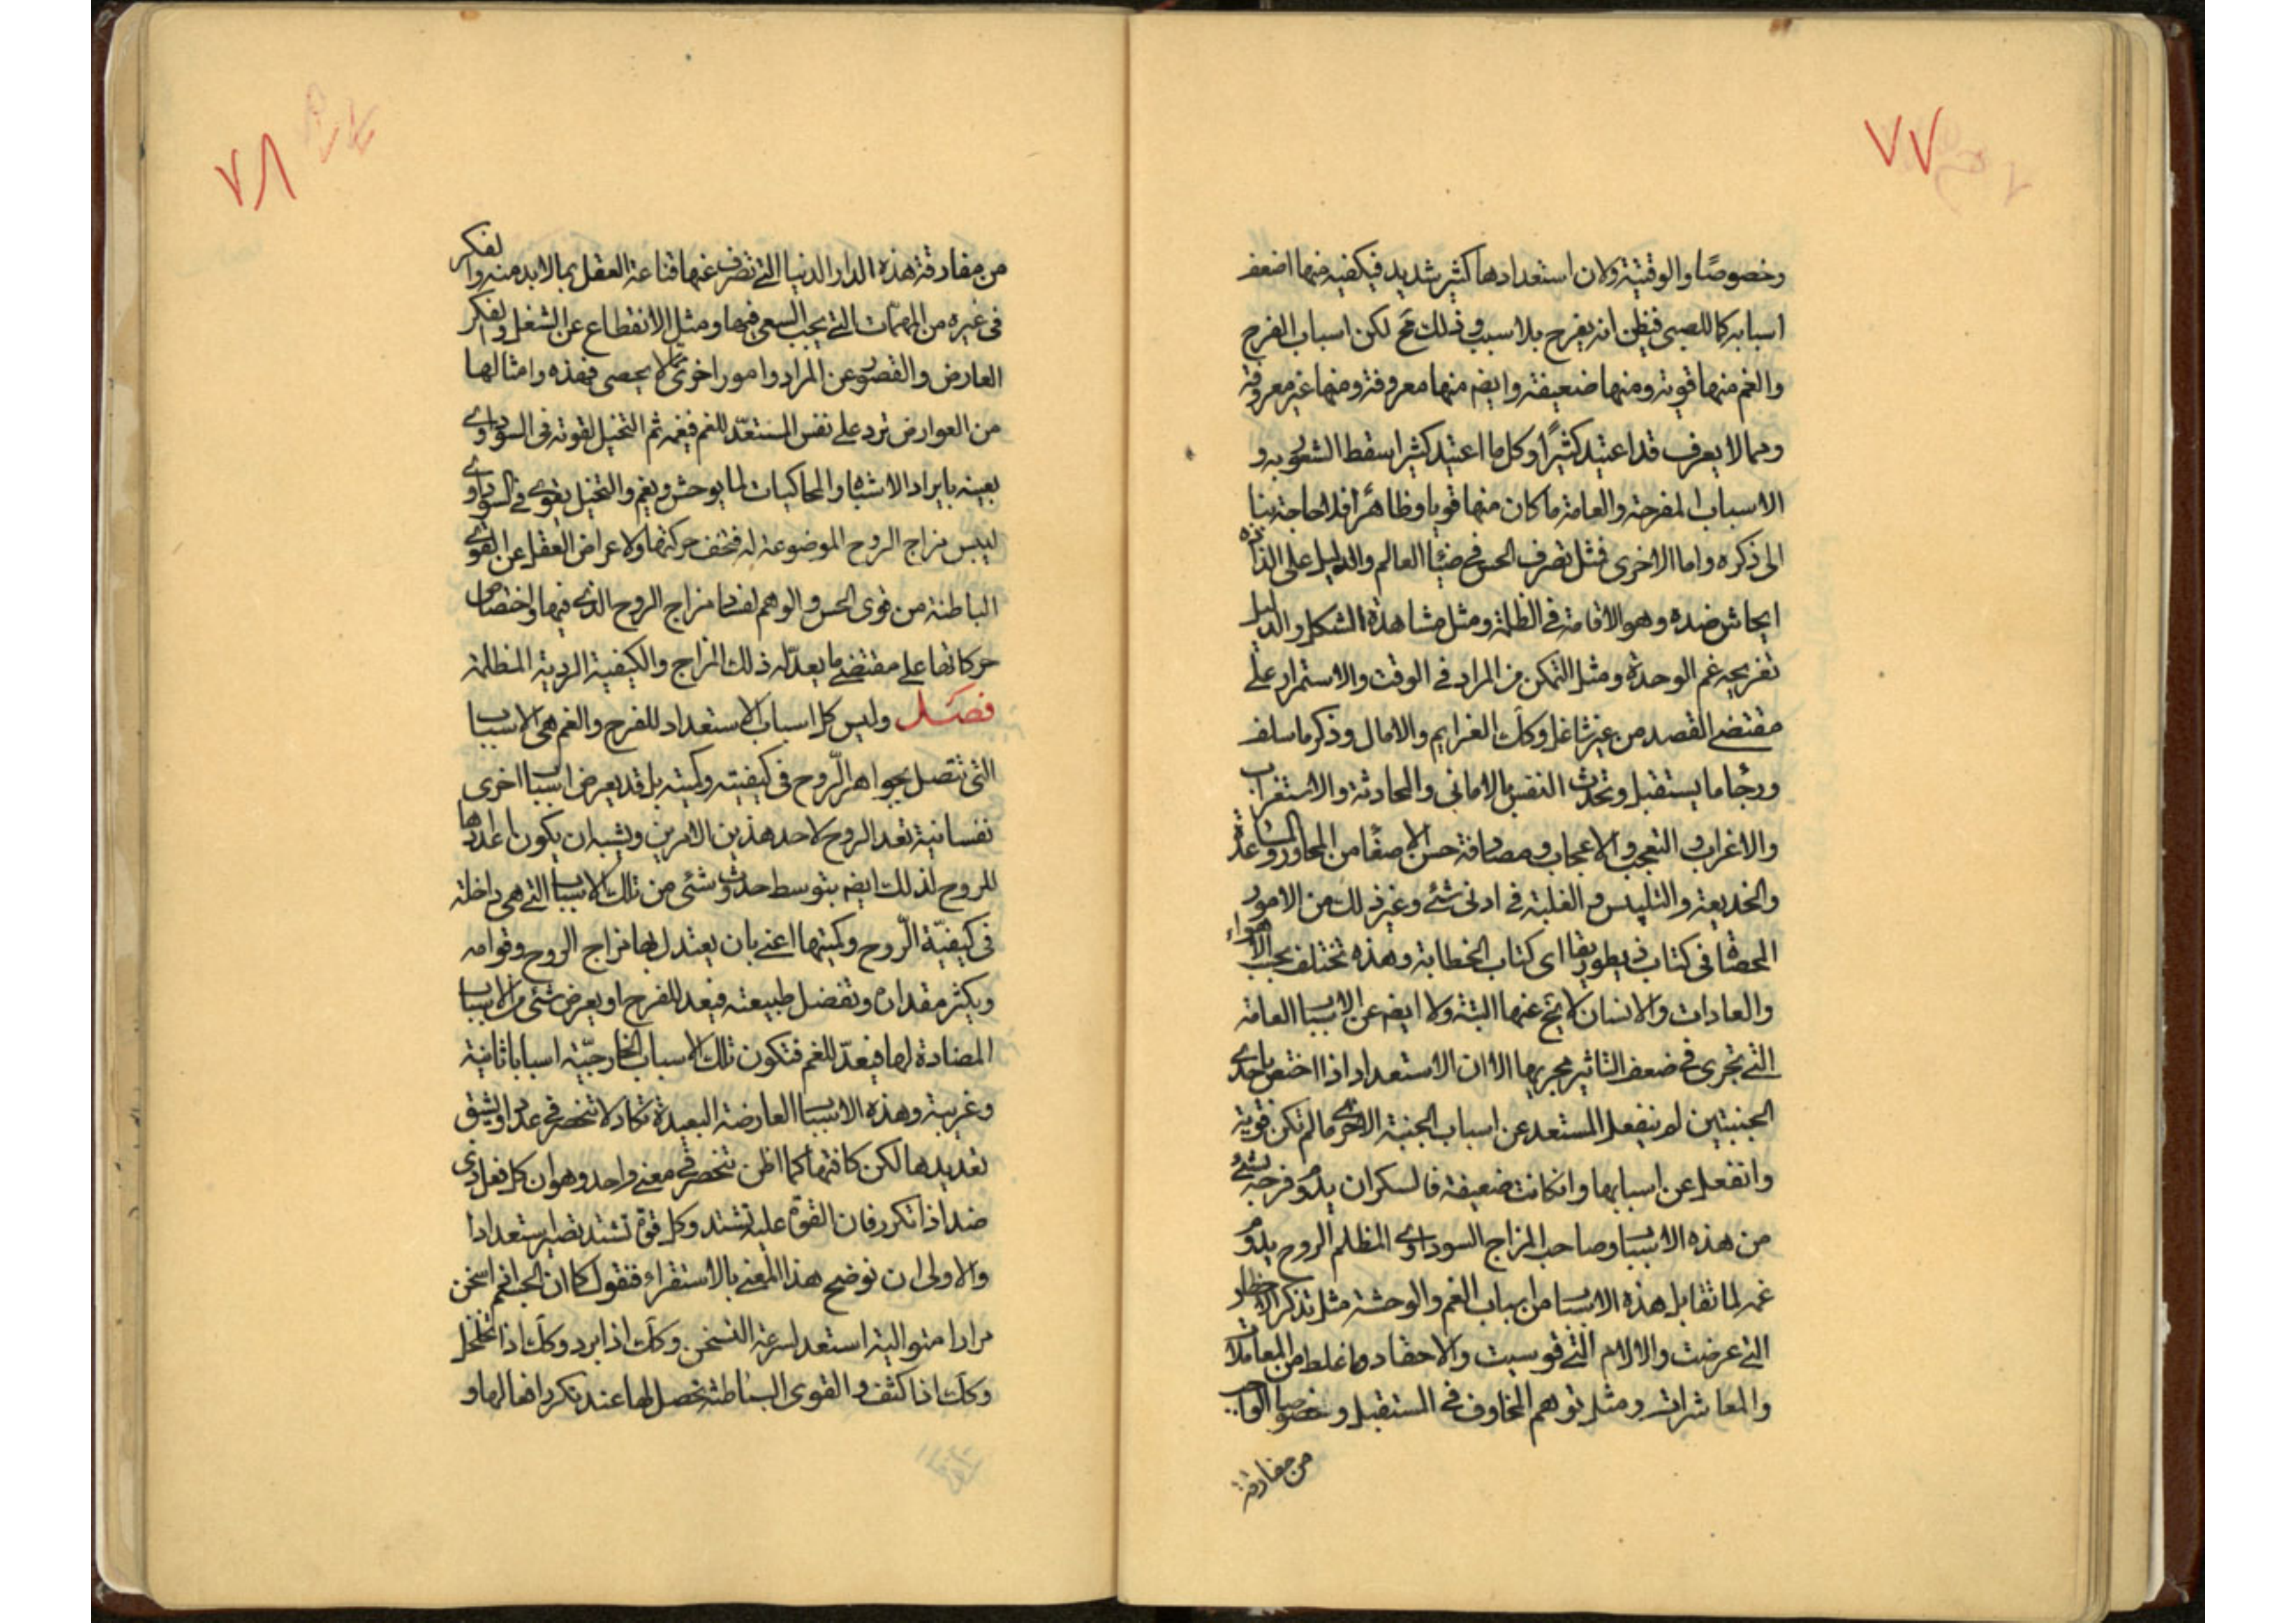 ٧٧
وخصوصًا والوقتية ولان استعدادها كثير شديد فيكفيه منها اضعف
اسبابه كاللصبى فيظن انه يفرح بلا سبب وذلك مح لكن اسباب الفرح
والغم منها قوية ومنها ضعيفة وايضم منها معروفة ومنها غير معروفة
ومما لا يعرف قد اعتيد كثيرًا وكل ما اعتيد كثيرا سقط الشعور به و
الاسباب المفرحة والعامة ما كان منها قويا وظاهرًا فلا حاجة بنا
الى ذكره واما الاخرى فمثل تصرف الحس فى ضياء العالم والدليل على الذاذه
ايحاش ضده وهو الاقامة فى الظلمة ومثل مشاهدة الشكل والدليل
تفريجه غم الوحدة ومثل التمكن من المراد فى الوقت والاستمرار على
مقتضى القصد من غير شاغل وكك العزايم والامال وذكر ما سلف
ورجاء ما يستقبل وتحدث النفس بالامانى والمحادثة والاستغراب
والاغراب والتعجب والاعجاب ومصادفة حسن الاصغاء من المحاور والمساعدة
والخديعة والتلبيس والغلبة فى ادنى شئ وغير ذلك من الامور
المحصاة فى كتاب ريطوريقا اى كتاب الخطابة وهذه تختلف بحسب الاهواء
والعادات والانسان لا يخ عنها البتة ولا ايضم عن الاسباب العامة
التى تجرى فى ضعف التاثير مجريها الا ان الاستعداد اذا اختص باحدى
الجنبتين لم ينفعل المستعد عن اسباب الجنبة الاخرى ما لم تكن قوية
وانفعل عن اسبابها وان كانت ضعيفة فالسكران يدوم فرحه بشئ
من هذه الاسباب وصاحب المزاج السوداوى المظلم الروح يدوم
غمه لما تقابل هذه الاسباب من اسباب الغم والوحشة مثل تذكر الاخطار
التى عرضت والالام التى قوسيت والاحقاد وما غلط من المعاملات
والمعاشرات ومثل توهم المخاوف فى المستقبل وخصوصا الواجب
من مفارقة
٧٨
من مفارقة هذه الدار الدنيا التى تصرف عنها قناعة العقل بما لا بد منه والفكر
فى غيره من المهمّات التى يجب السعى فيها ومثل الانقطاع عن الشغل والفكر
العارض والقصور عن المراد وامور اخرى مما لا يحصى فهذه وامثالها
من العوارض ترد على نفس المستعدّ للغم فيغمه ثم التخيل لقوته فى السوداوى
يعينه بايراد الاشباه والمحاكيات لما يوحش ويغم والتخيل يقوى فى السوداوى
ليبس مزاج الروح الموضوعة له فتخف حركتها ولاعراض العقل عن القوى
الباطنة من قوى الحس والوهم لفساد مزاج الروح الذى فيها واختصاص
حركاتها على مقتضى ما يعدّ له ذلك المزاج والكيفية الردية المظلمة
فصل وليس كل اسباب الاستعداد للفرح والغم هى الاسباب
التى تتصل بجواهر الرّوح فى كيفيته وكميته بل قد يعرض اسباب اخرى
نفسانية تعد الروح لاحد هذين الامرين ويشبه ان يكون اعدادها
للروح لذلك ايضم بتوسط حدوث شئى من تلك الاسباب التى هى داخلة
فى كيفيّة الرّوح وكميتها اعنى بان يعتدل بها مزاج الروح وقوامه
ويكثر مقداره وتفضل طبيعته فيعد للفرح او يعرض شئى من الاسباب
المضادة لها فيعدّ للغم فتكون تلك الاسباب الخارجيّة اسبابا ثانية
وغريبة وهذه الاسباب العارضة البعيدة تكاد لا تنحصر فى عدد او يشق
تعديدها لكن كافتها كما اظن تنحصر فى معنى واحد وهو ان كل فعل ذى
ضد اذا تكرر فان القوة عليه تشتد وكل قوة تشتد تصير استعدادا
والاولى ان نوضح هذا المعنى بالاستقراء فنقول كما ان الجسم اذا سخن
مرارا متوالية استعد لسرعة التسخن وكك اذا برد وكك اذا تخلخل
وكك اذا كثف والقوى الباطنة تحصل لها عند تكرر افعالها و